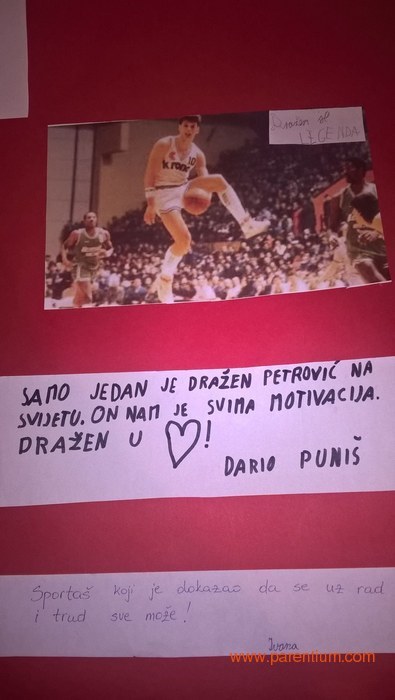 Dražen
LEGENDA
10
SAMO JEDAN JE DRAŽEN PETROVIĆ NA
SVIJETU. ON NAM JE SVIMA MOTIVACIJA.
DRAŽEN U ♡!
DARIO PUNIŠ
Sportaš koji je dokazao da se uz rad
i trud sve može!
Ivana
www.parentium.com